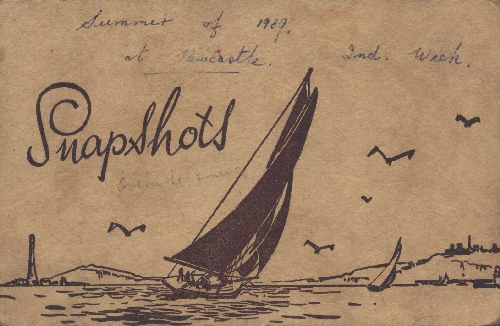 Summer of 1929.
at Newcastle. 2nd. Week.
Snapshots